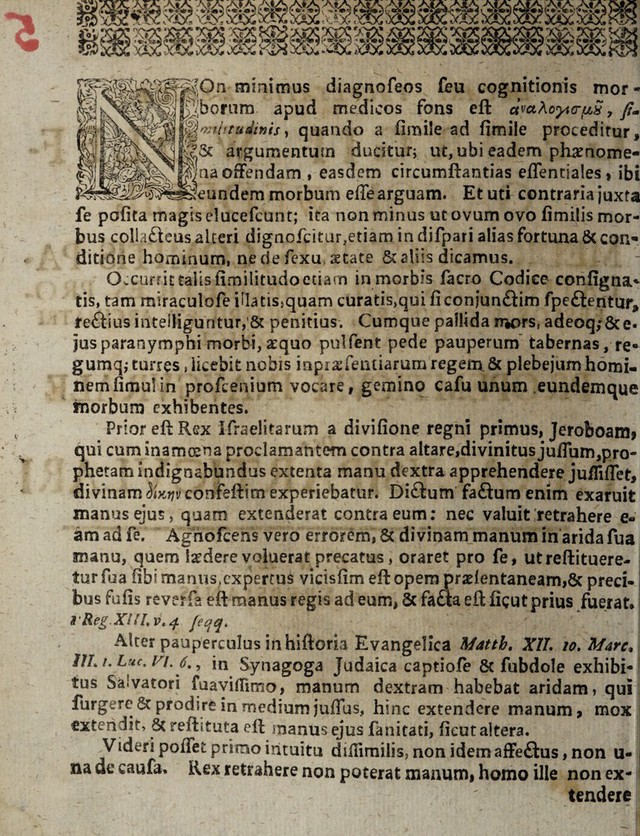 5
NOn minimus diagnoſeos ſeu cognitionis mor-
borum apud medicos fons eſt ἀναλογισμῦ, ſi-
militudinis, quando a ſimile ad ſimile proceditur,
& argumentum ducitur; ut, ubi eadem phænome-
na offendam, easdem circumſtantias eſſentiales, ibi
eundem morbum eſſe arguam. Et uti contraria juxta
ſe poſita magis eluceſcunt; ita non minus ut ovum ovo ſimilis mor-
bus collacteus alteri dignoſcitur, etiam in diſpari alias fortuna & con-
ditione hominum, ne de ſexu, ætate & aliis dicamus.
Occurrit talis ſimilitudo etiam in morbis ſacro Codice conſigna-
tis, tam miraculoſe illatis, quam curatis, qui ſi conjunctim ſpectentur,
rectius intelliguntur, & penitius. Cumque pallida mors, adeoq; & e-
jus paranymphi morbi, æquo pulſent pede pauperum tabernas, re-
gumq; turres, licebit nobis inpræſentiarum regem & plebejum homi-
nem ſimul in proſcenium vocare, gemino caſu unum eundemque
morbum exhibentes.
Prior eſt Rex Iſraelitarum a diviſione regni primus, Jeroboam,
qui cum inamœna proclamantem contra altare, divinitus juſſum, pro-
phetam indignabundus extenta manu dextra apprehendere juſſiſſet,
divinam δίκην confeſtim experiebatur. Dictum factum enim exaruit
manus ejus, quam extenderat contra eum: nec valuit retrahere e-
am ad ſe. Agnoſcens vero errorem, & divinam manum in arida ſua
manu, quem lædere voluerat precatus, oraret pro ſe, ut reſtituere-
tur ſua ſibi manus, expertus viciſſim eſt opem præſentaneam, & preci-
bus fuſis reverſa eſt manus regis ad eum, & facta eſt ſicut prius fuerat.
1 Reg. XIII. v. 4 ſeqq.
Alter pauperculus in hiſtoria Evangelica Matth. XII. 10. Marc.
III. 1. Luc. VI. 6., in Synagoga Judaica captioſe & ſubdole exhibi-
tus Salvatori ſuaviſſimo, manum dextram habebat aridam, qui
ſurgere & prodire in medium juſſus, hinc extendere manum, mox
extendit, & reſtituta eſt manus ejus ſanitati, ſicut altera.
Videri poſſet primo intuitu diſſimilis, non idem affectus, non u-
na de cauſa. Rex retrahere non poterat manum, homo ille non ex-
tendere